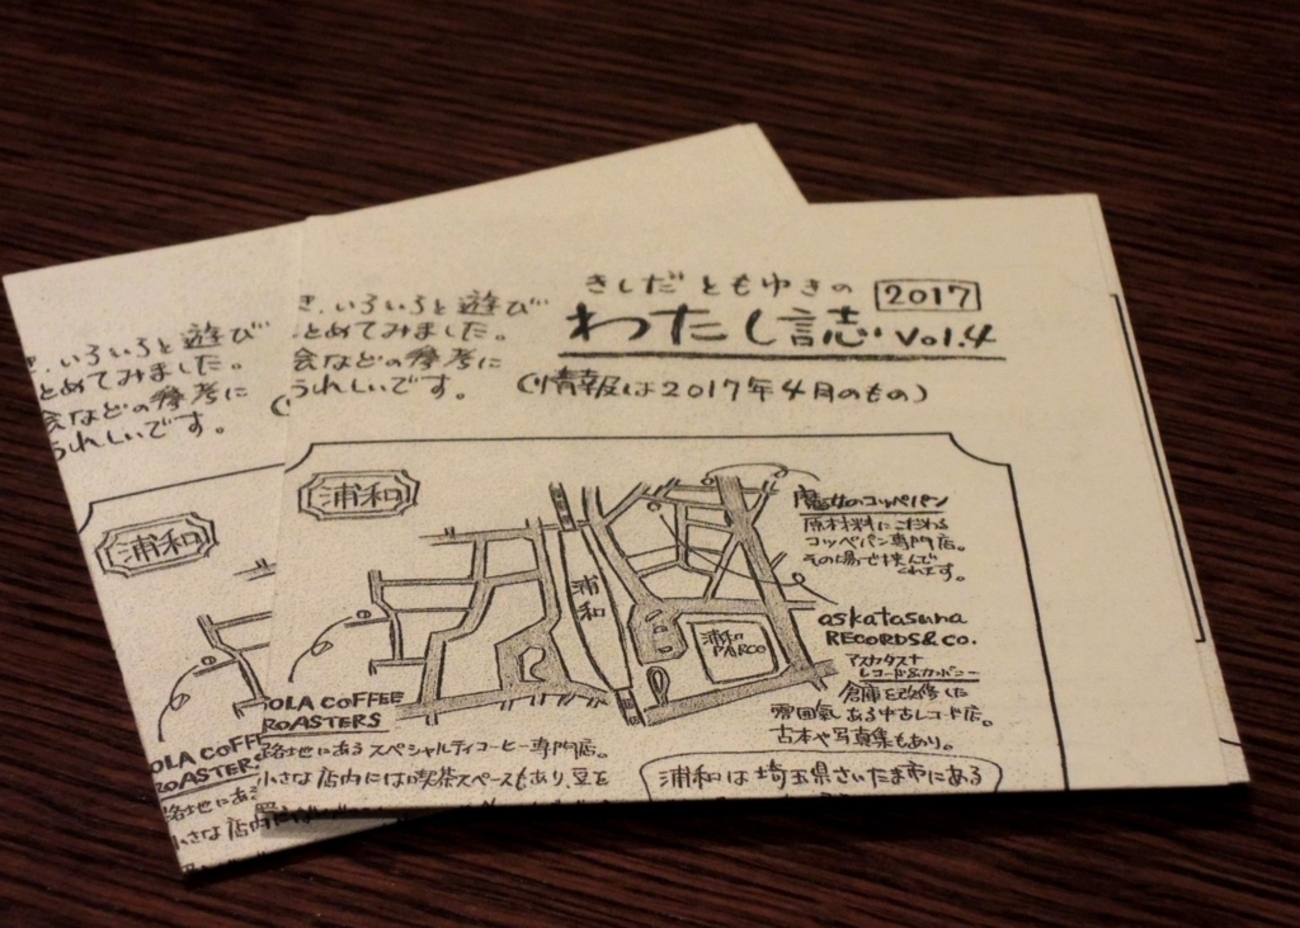 きしだともゆきの
2017
わたし誌 Vol.4
(情報は2017年4月のもの)
き、いろいろと遊び
とめてみました。
会などの参考に
うれしいです。
浦和
浦和
浦和
PARCO
魔女のコッペパン
原材料にこだわる
コッペパン専門店。
その場で挟んで
くれます。
askatasuna
RECORDS & CO.
アスカタスナ
レコード&カンパニー
倉庫を改修した
雰囲気ある中古レコード店。
古本や写真集もあり。
OLA COFFEE
ROASTERS
路地にあるスペシャルティコーヒー専門店。
小さな店内には喫茶スペースもあり、豆を
浦和は埼玉県さいたま市にある
き、いろいろと遊び
とめてみました。
会などの参考に
うれしいです。
(
浦和
OLA COFFE
ROASTER
路地にあ
小さな店内